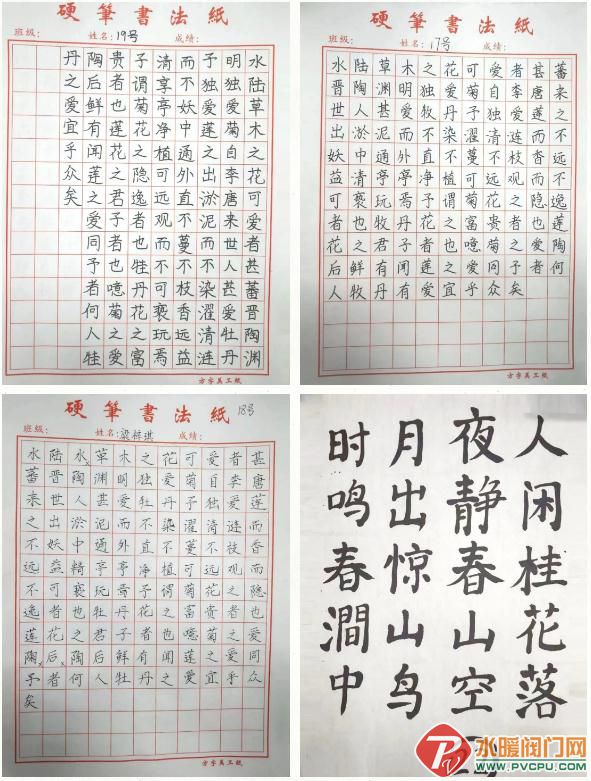 硬筆書法紙
班级: 姓名:19号 成绩:
水陆草木之花可爱者甚蕃晋陶渊
明独爱菊自李唐来世人甚爱牡丹
予独爱莲之出淤泥而不染濯清涟
而不妖中通外直不蔓不枝香远益
清享亭净植可远观而不可亵玩焉
子谓菊花之隐逸者也牡丹花之富
贵者也莲花之君子者也噫菊之爱
陶后鲜有闻莲之爱同予者何人牡
丹之爱宜乎众矣
方字美工纸
硬筆書法紙
班级: 姓名:17号 成绩:
水陆草木之花可爱者甚蕃
晋陶渊明独爱菊自李唐来
世人甚爱牧丹予独爱莲之
出淤泥而不染濯清涟而不
妖中通外直不蔓不枝香远
益清亭亭净植可远观而不
可亵玩焉予谓菊花之隐逸
者也牧丹花之富贵者也莲
花之君子者也噫菊之爱陶
后鲜有闻莲之爱同予者何
人牧丹之爱宜乎众矣
方字美工纸
硬筆書法紙 18号
班级: 姓名:梁梓琪 成绩:
水陆水草木之花可爱者甚
蕃晋陶渊明独爱菊自李唐
来世人甚爱牡丹予独爱莲
之出淤泥而不染濯清涟而
不妖中通外直不蔓不枝香
远益精亭亭净植可远观而
不可亵玩焉予谓菊花之隐
逸者也牡丹花之富贵者也
莲花之君子者也噫菊之爱
陶后陶后鲜有闻莲之爱同
予者何人牡丹之爱宜乎众
矣
方字美工纸
人闲桂花落
夜静春山空
月出惊山鸟
时鸣春澗中
水暖阀门网
WWW.PVCPU.COM